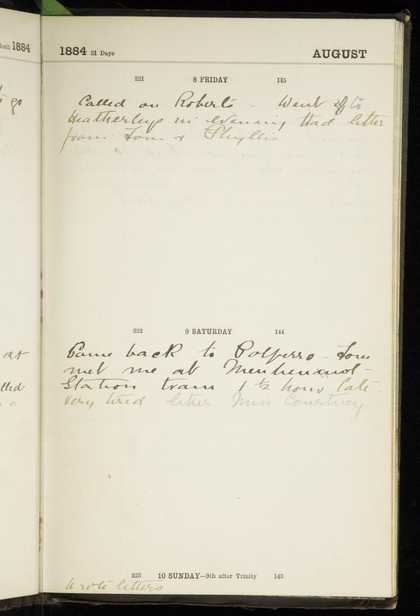 1884
1884 31 Days
AUGUST
221 8 FRIDAY 145
to go
Called on Roberts - Went to
Heatherleys in evening Had letter
from Tom & Phyllis
222 9 SATURDAY 144
at
Came back to Polperro - Tom
met me at Menheniot
Station train 1 ½ hours late
lled
very tired letter Miss Courtney
223 10 SUNDAY—9th after Trinity 143
Wrote letters